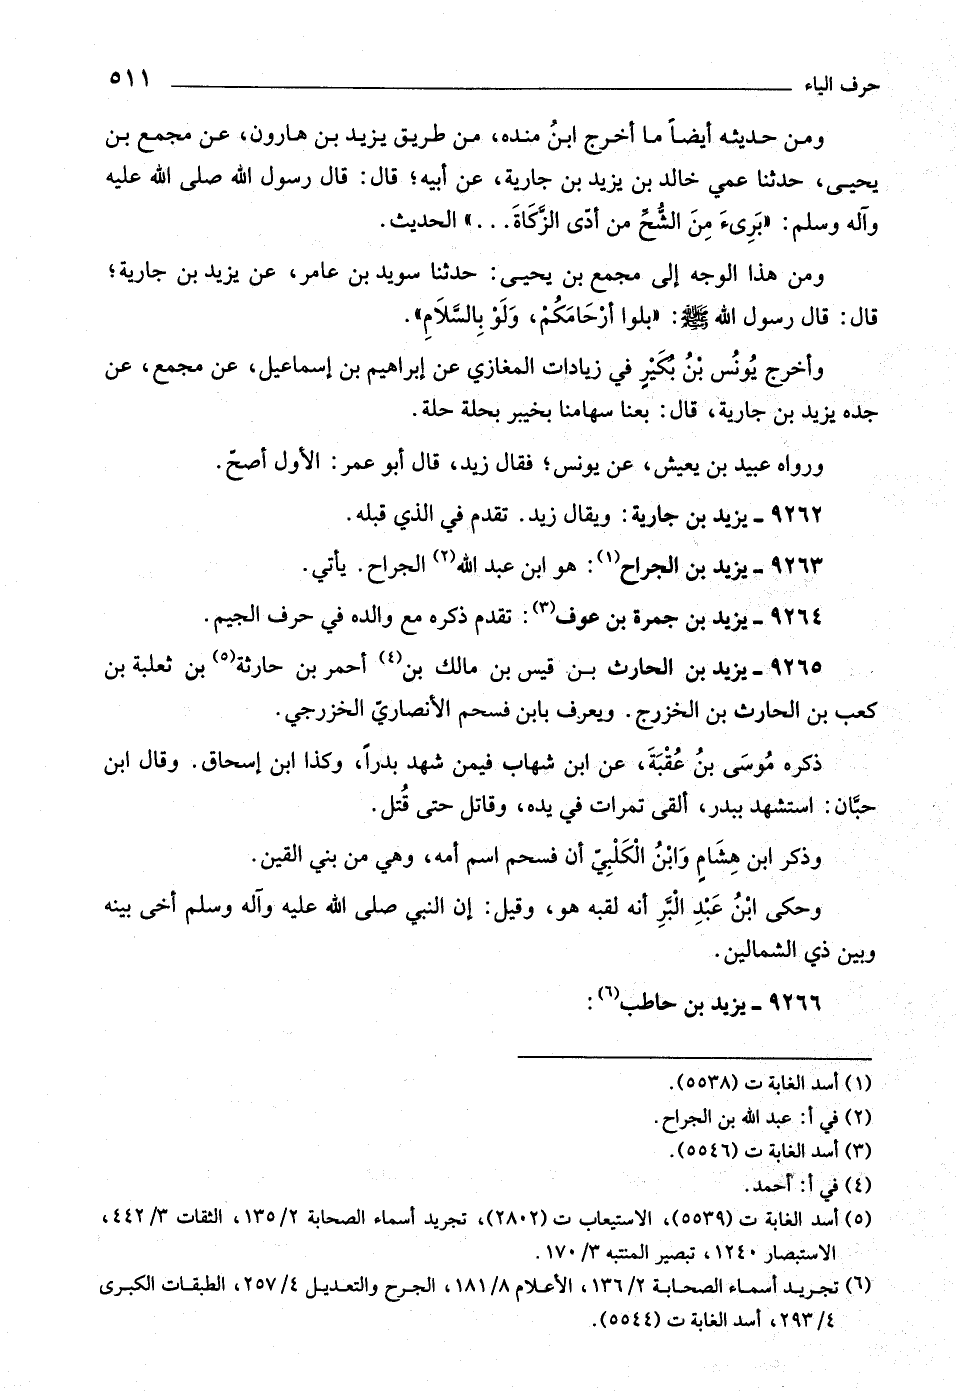 حرف الياء ٥١١
ومن حديثه أيضاً ما أخرج ابنُ منده، من طريق يزيد بن هارون، عن مجمع بن
يحيى، حدثنا عمي خالد بن يزيد بن جارية، عن أبيه؛ قال: قال رسول الله صلى الله عليه
وآله وسلم: «بَرِىءَ مِنَ الشُّحِّ من أدّى الزَّكَاةَ. . .» الحديث.
ومن هذا الوجه إلى مجمع بن يحيى: حدثنا سويد بن عامر، عن يزيد بن جارية؛
قال: قال رسول الله ﷺ: «بلوا أرْحَامَكُمْ، وَلَوْ بِالسَّلَامِ».
وأخرج يُونُس بْنُ بُكَيْرٍ في زيادات المغازي عن إبراهيم بن إسماعيل، عن مجمع، عن
جده يزيد بن جارية، قال: بعنا سهامنا بخيبر بحلة حلة.
ورواه عبيد بن يعيش، عن يونس؛ فقال زيد، قال أبو عمر: الأول أصحّ.
٩٢٦٢ ـ يزيد بن جارية: ويقال زيد. تقدم في الذي قبله.
٩٢٦٣ ـ يزيد بن الجراح(١): هو ابن عبد الله(٢) الجراح. يأتي.
٩٢٦٤ ـ يزيد بن جمرة بن عوف(٣): تقدم ذكره مع والده في حرف الجيم.
٩٢٦٥ ـ يزيد بن الحارث بن قيس بن مالك بن(٤) أحمر بن حارثة(٥) بن ثعلبة بن
كعب بن الحارث بن الخزرج. ويعرف بابن فسحم الأنصاريّ الخزرجي.
ذكره مُوسَى بنُ عُقْبَةَ، عن ابن شهاب فيمن شهد بدراً، وكذا ابن إسحاق. وقال ابن
حبَّان: استشهد ببدر، ألقى تمرات في يده، وقاتل حتى قُتل.
وذكر ابن هِشَامٍ وَابْنُ الْكَلْبِيّ أن فسحم اسم أمه، وهي من بني القين.
وحكى ابْنُ عَبْدِ الْبَّرِ أنه لقبه هو، وقيل: إن النبي صلى الله عليه وآله وسلم أخى بينه
وبين ذي الشمالين.
٩٢٦٦ ـ يزيد بن حاطب(٦):
(١) أسد الغابة ت (٥٥٣٨).
(٢) في أ: عبد الله بن الجراح.
(٣) أسد الغابة ت (٥٥٤٦).
(٤) في أ: أحمد.
(٥) أسد الغابة ت (٥٥٣٩)، الاستيعاب ت (٢٨٠٢)، تجريد أسماء الصحابة ٢/ ١٣٥، الثقات ٣/ ٤٤٢،
الاستبصار ١٢٤٠، تبصير المنتبه ٣/ ١٧٠.
(٦) تجريد أسماء الصحابة ٢/ ١٣٦، الأعلام ٨/ ١٨١، الجرح والتعديل ٤/ ٢٥٧، الطبقات الكبرى
٤/ ٢٩٣، أسد الغابة ت (٥٥٤٤).